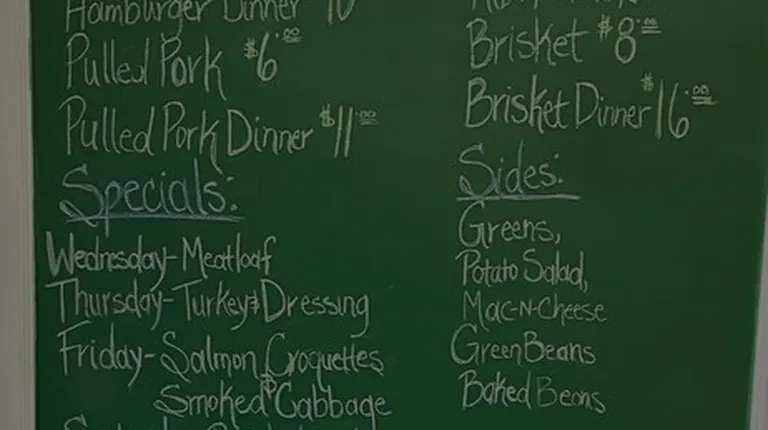 Hamburger Dinner 10
Pulled Pork $6.00
Pulled Pork Dinner $11.00
Specials:
Wednesday-Meatloaf
Thursday-Turkey & Dressing
Friday-Salmon Croquettes
Smoked Cabbage
Brisket $8.00
Brisket Dinner $16.00
Sides:
Greens,
Potato Salad,
Mac-N-Cheese
Green Beans
Baked Beans